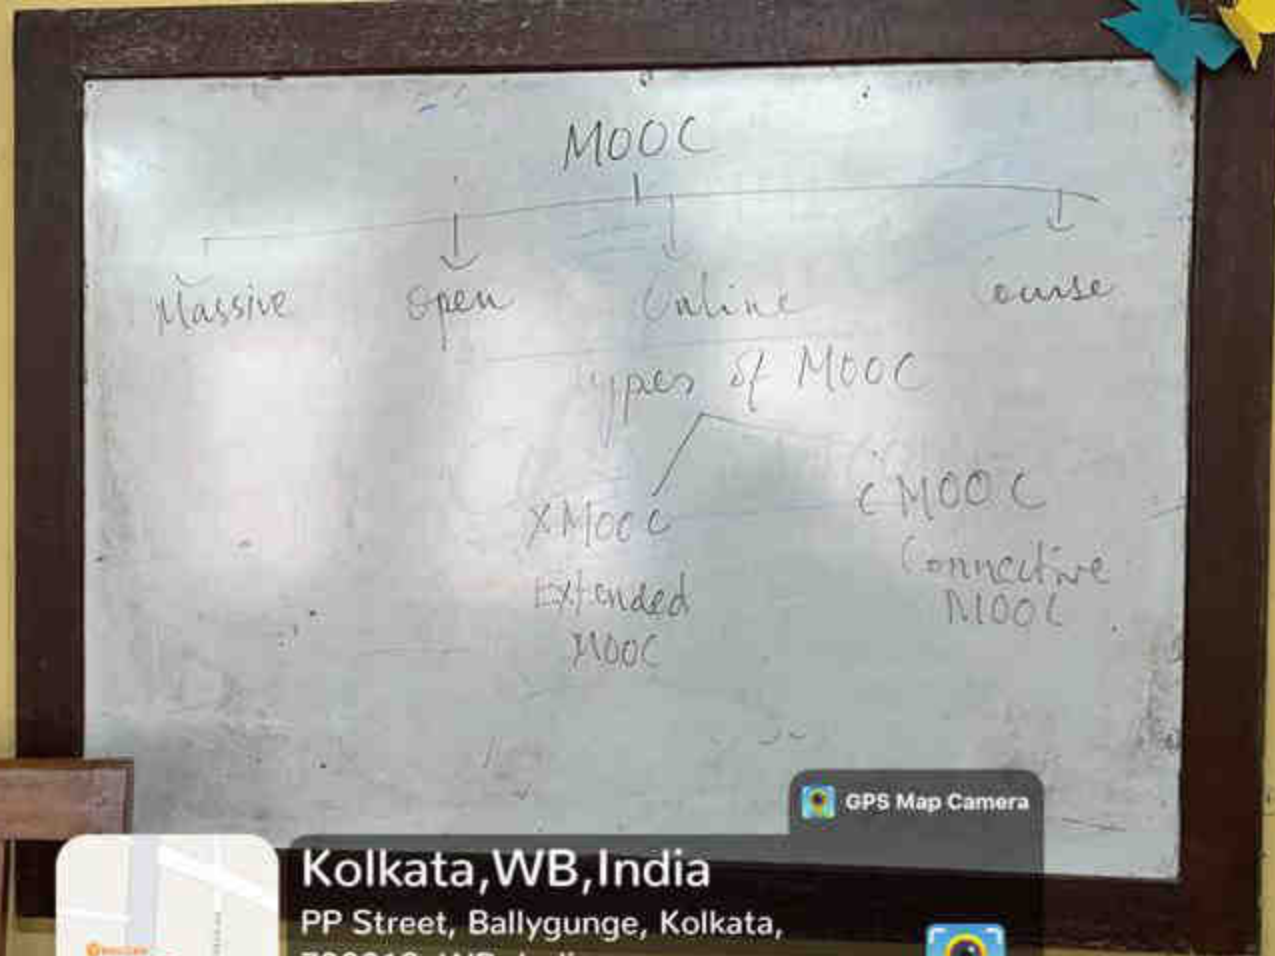 MOOC
Massive Open Online Course
Types of MOOC
XMOOC
cMOOC
Extended
MOOC
Connective
MOOC
GPS Map Camera
Kolkata,WB,India
PP Street, Ballygunge, Kolkata,